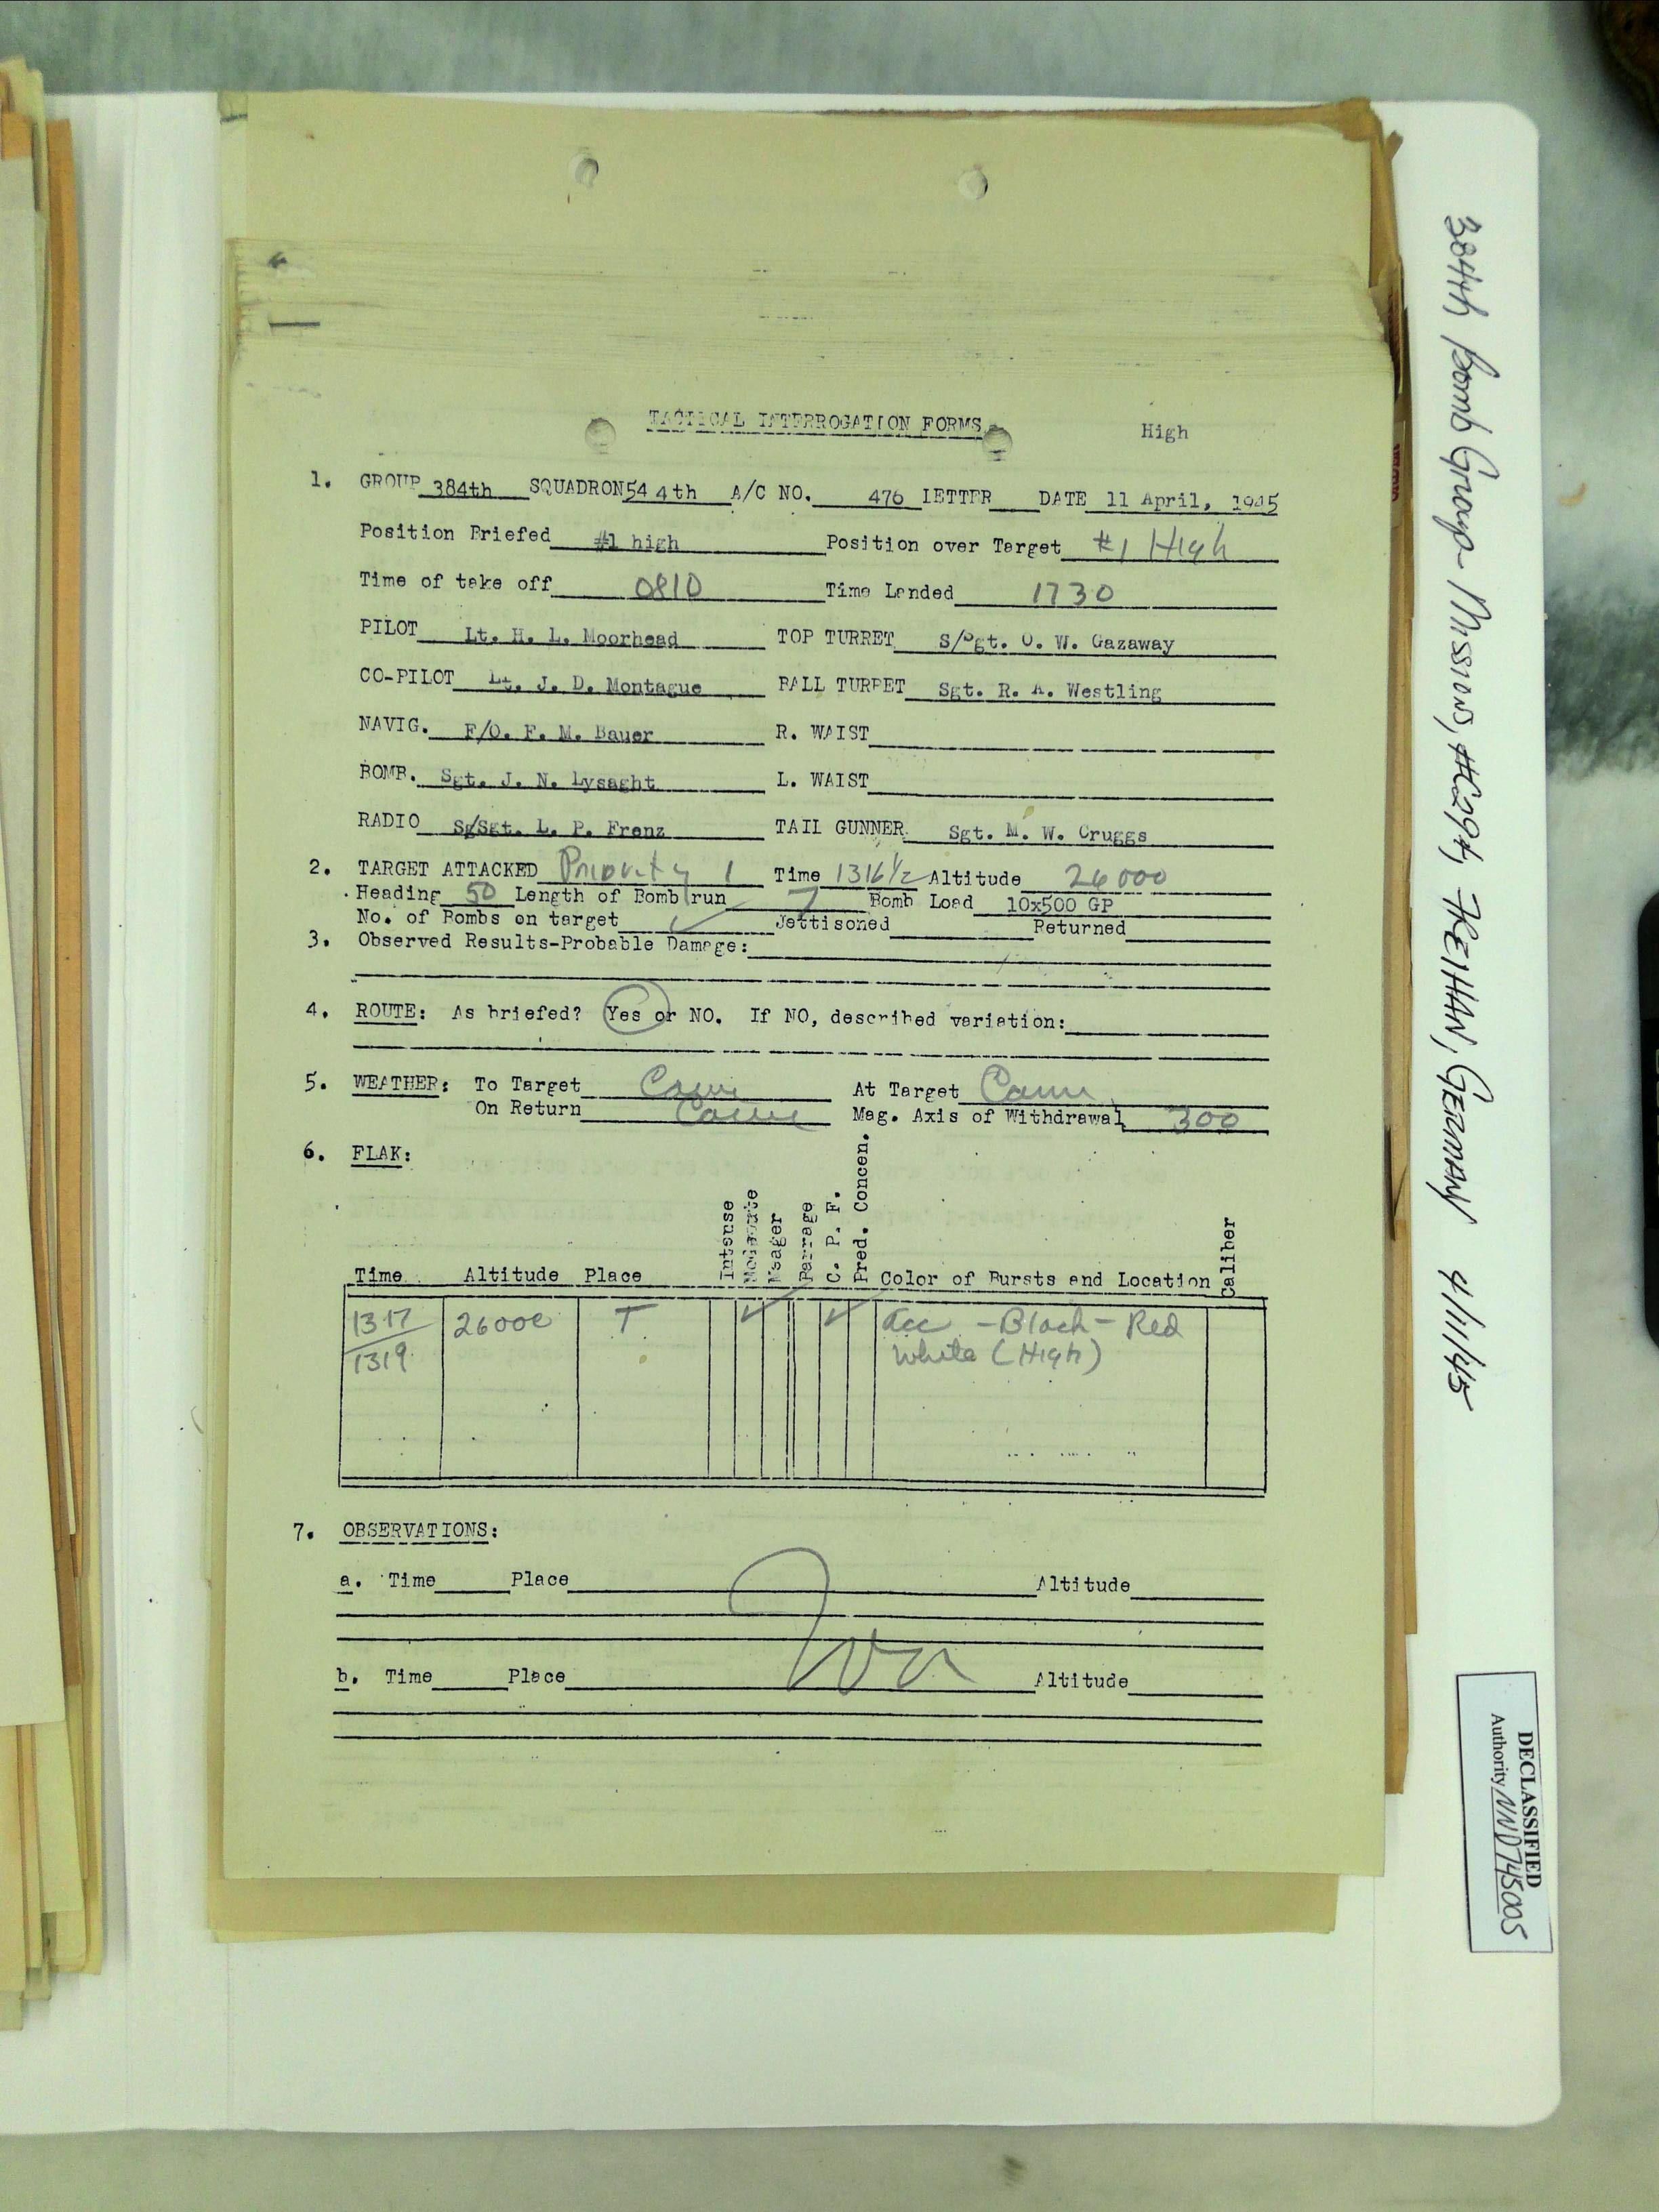 TACTICAL INTERROGATION FORMS
High
1. GROUP 384th SQUADRON 544th A/C NO. 476 LETTER DATE 11 April, 1945
Position Briefed #1 high Position over Target #1 High
Time of take off 0810 Time Landed 1730
PILOT Lt. H. L. Moorhead TOP TURRET S/Sgt. O. W. Gazaway
CO-PILOT Lt. J. D. Montague BALL TURRET Sgt. R. A. Westling
NAVIG. F/O. F. M. Bauer R. WAIST
BOMB. Sgt. J. N. Lysaght L. WAIST
RADIO Sg/Sgt. L. P. Frenz TAIL GUNNER Sgt. M. W. Cruggs
2. TARGET ATTACKED Priority 1 Time 1316½ Altitude 26000
Heading 50 Length of Bomb run Bomb Load 10x500 GP
No. of Bombs on target ✓ Jettisoned Returned
3. Observed Results-Probable Damage:
4. ROUTE: As briefed? Yes or NO. If NO, described variation:
5. WEATHER: To Target Cavu At Target Cavu
On Return Cavu Mag. Axis of Withdrawal 300
6. FLAK:
Time Altitude Place Intense Moderate Meager Barrage C. P. F. Pred. Concen. Color of Bursts and Location Caliber
1317 26000 T ✓ ✓ Acc - Black - Red
1319 White (High)
7. OBSERVATIONS:
a. Time Place Altitude
b. Time Place Altitude
384th Bomb Group - Missions, #294, FREIHAN, GERMANY 4/11/45
DECLASSIFIED
Authority NND745005